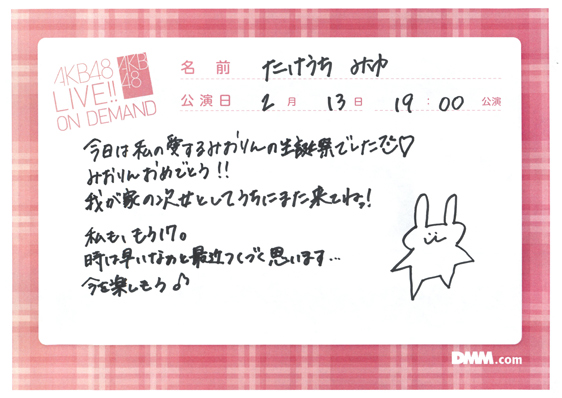 AKB48
LIVE!!
ON DEMAND
AKB
48
名 前 たけうち みゆ
公演日 2 月 13 日 19 : 00 公演
今日は私の愛するみおりんの生誕祭でした♡
みおりんおめでとう!!
我が家の次女としてうちにまた来てねッ!
私も、もう17。
時は早いなぁと最近つくづく思います…
今を楽しもう♪
DMM.com